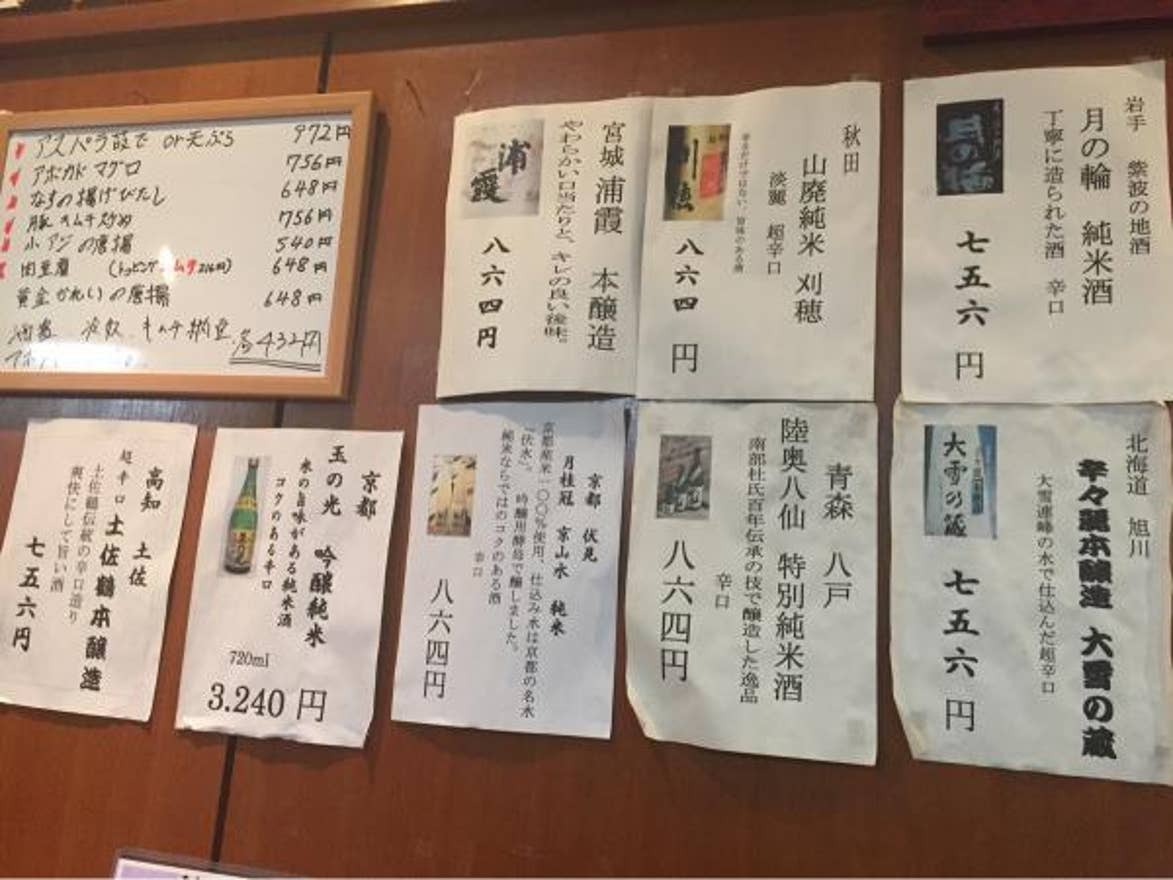 アスパラ茹で or 天ぷら 972円
アボカドマグロ 756円
なすの揚げびたし 648円
豚キムチ炒め 756円
小アジの唐揚 540円
肉豆腐 (トッピングキムチ216円) 648円
黄金かれいの唐揚 648円
冷奴、キムチ納豆 各432円
岩手 紫波の地酒
月の輪 純米酒
丁寧に造られた酒 辛口
月の輪
七五六円
秋田
山廃純米 刈穂
淡麗 超辛口
旨味のある酒
刈穂
八六四円
宮城 浦霞 本醸造
やわらかい口当たりと、キレの良い後味。
浦霞
八六四円
北海道 旭川
辛々麗本醸造 大雪の蔵
大雪連峰の水で仕込んだ超辛口
大雪乃蔵
七五六円
青森 八戸
陸奥八仙 特別純米酒
南部杜氏百年伝承の技で醸造した逸品
辛口
八六四円
京都 伏見
月桂冠 京山水 純米
京都産米一〇〇%使用、仕込み水は京都の名水
『伏水』。 吟醸用酵母で醸しました。
純米ならではのコクのある酒
辛口
八六四円
京都
玉の光 吟醸純米
米の旨味がある純米酒
コクのある辛口
720ml
3.240円
高知 土佐
超辛口 土佐鶴本醸造
土佐鶴伝統の辛口造り
爽快にして旨い酒
七五六円